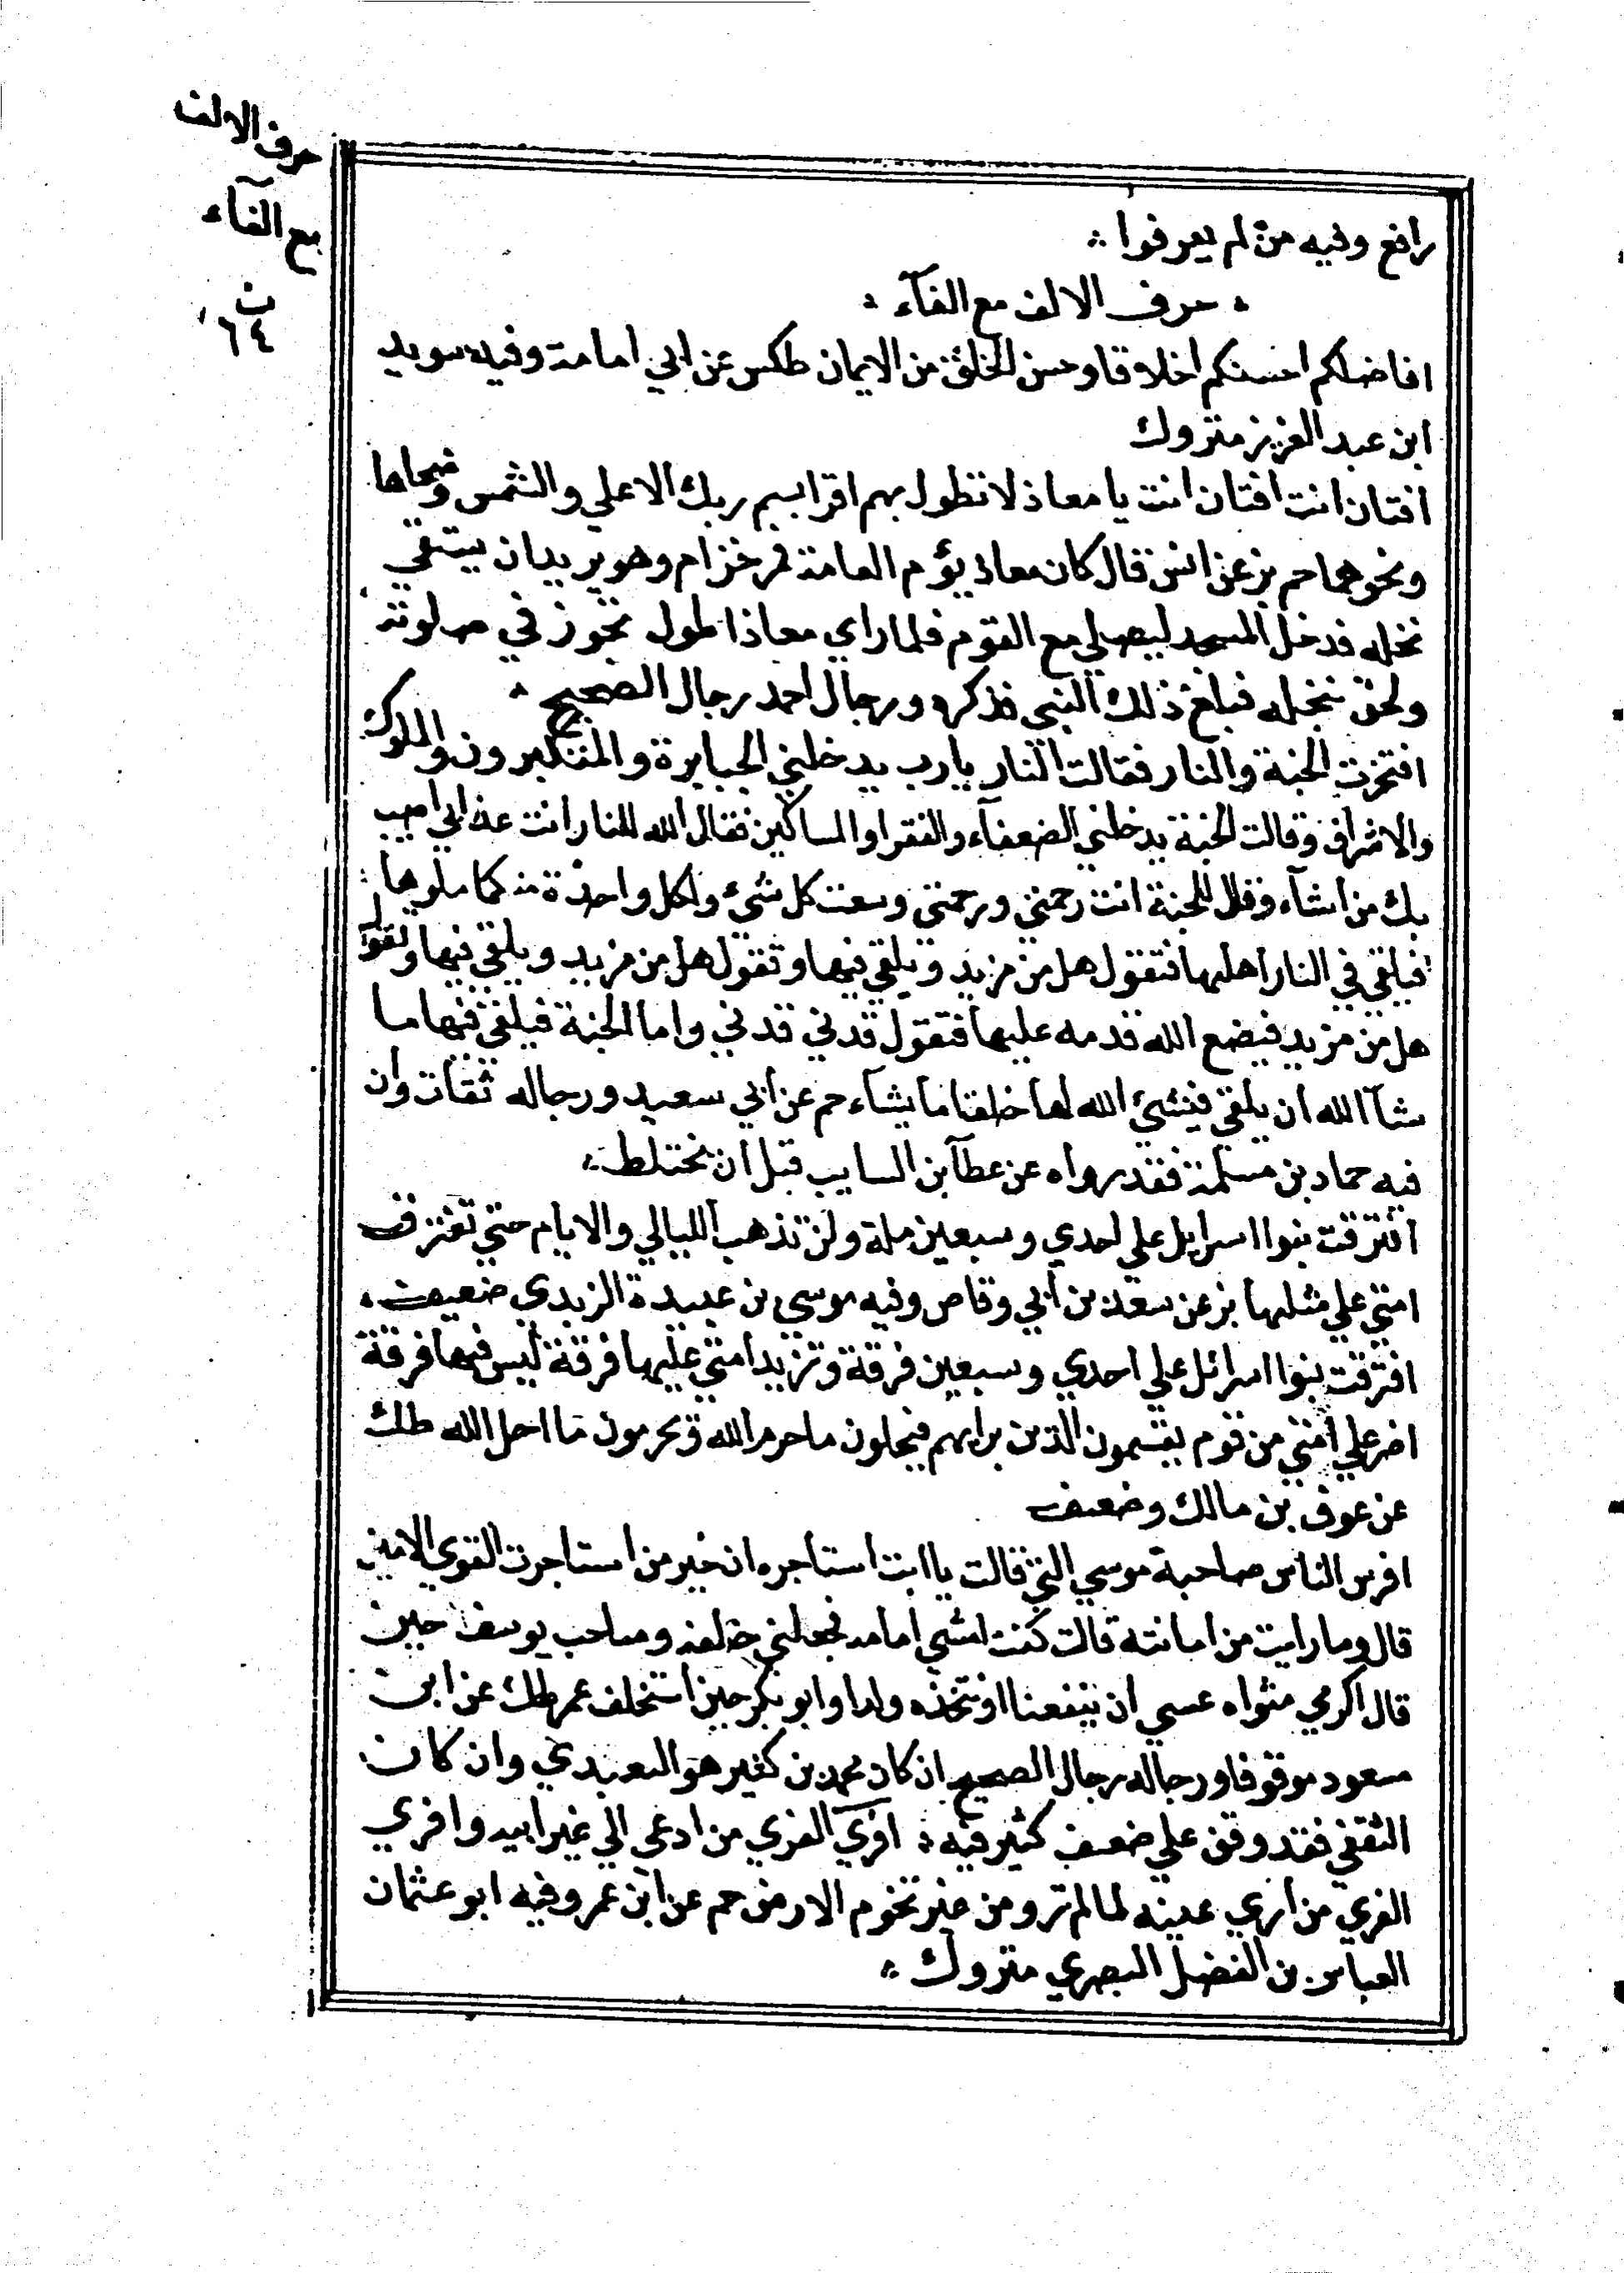 حرف الالف
مع الفآء
ن
٦٤
رافع وفيه من لم يعرفوا
حرف الالف مع الفآء
افاضلكم احسنكم اخلاقا وحسن الخلق من الايمان طكس عن ابي امامة وفيه سويد
ابن عبد العزيز متروك
افتان انت افتان انت يا معاذ لا تطول بهم اقرا بسم ربك الاعلي والشمس وضحاها
ونحوهما حم بز عن انس قال كان معاذ يؤم العامة فمر خزام وهو يريد ان يستقي
نخله فدخل المسجد ليصلي مع القوم فلما راي معاذا طول تجوز في صلوته
ولحق بنخله فبلغ ذلك النبي فذكره ورجال احمد رجال الصحيح
افتخرت الجنة والنار فقالت النار يا رب يدخلني الجبابرة والمتكبرون والملوك
والاشراف وقالت الجنة يدخلني الضعفآء والفقرا والمساكين فقال الله للنار انت عذابي اصيب
بك من اشآء وقال للجنة انت رحمتي ورحمتي وسعت كل شيء ولكل واحدة منكما ملوها
فيلقي في النار اهلها فتقول هل من مزيد ويلقي فيها وتقول هل من مزيد ويلقي فيها وتقول
هل من مزيد فيضع الله قدمه عليها فتقول قدني قدني واما الجنة فيلقي فيها ما
شآ الله ان يلقي فينشئ الله لها خلقا ما يشاء حم عن ابي سعيد ورجاله ثقات وان
فيه حماد بن مسلمة فقد رواه عن عطآ بن السايب قبل ان يختلط
افترقت بنوا اسرايل علي احدي وسبعين ملة ولن تذهب الليالي والايام حتي تفترق
امتي علي مثلها بز عن سعد بن ابي وقاص وفيه موسي بن عبيدة الزبدي ضعيف
افترقت بنوا اسرائل علي احدي وسبعين فرقة وتزيد امتي عليها فرقة ليس فيها فرقة
اضر علي امتي من قوم يقسمون الدين برايهم فيحلون ما حرم الله ويحرمون ما احل الله طلك
عن عوف بن مالك وضعف
افرس الناس صاحبة موسي التي قالت يا ابت استاجره ان خير من استاجرت القوي الامين
قال وما رايت من امانته قالت كنت امشي امامه فجعلني خلفه وصاحب يوسف حين
قال اكرمي مثواه عسي ان ينفعنا او نتخذه ولدا وابو بكر حين استخلف عمر طلك عن ابن
مسعود موقوفا ورجاله رجال الصحيح ان كان محمد بن كثير هو العبدي وان كان
الثقفي فقد وثق علي ضعف كثير فيه افري الفري من ادعي الي غير ابيه وافري
الفري من اري عينه لما لم تر ومن غير تخوم الارض حم عن ابن عمر وفيه ابو عثمان
العباس بن الفضل البصري متروك